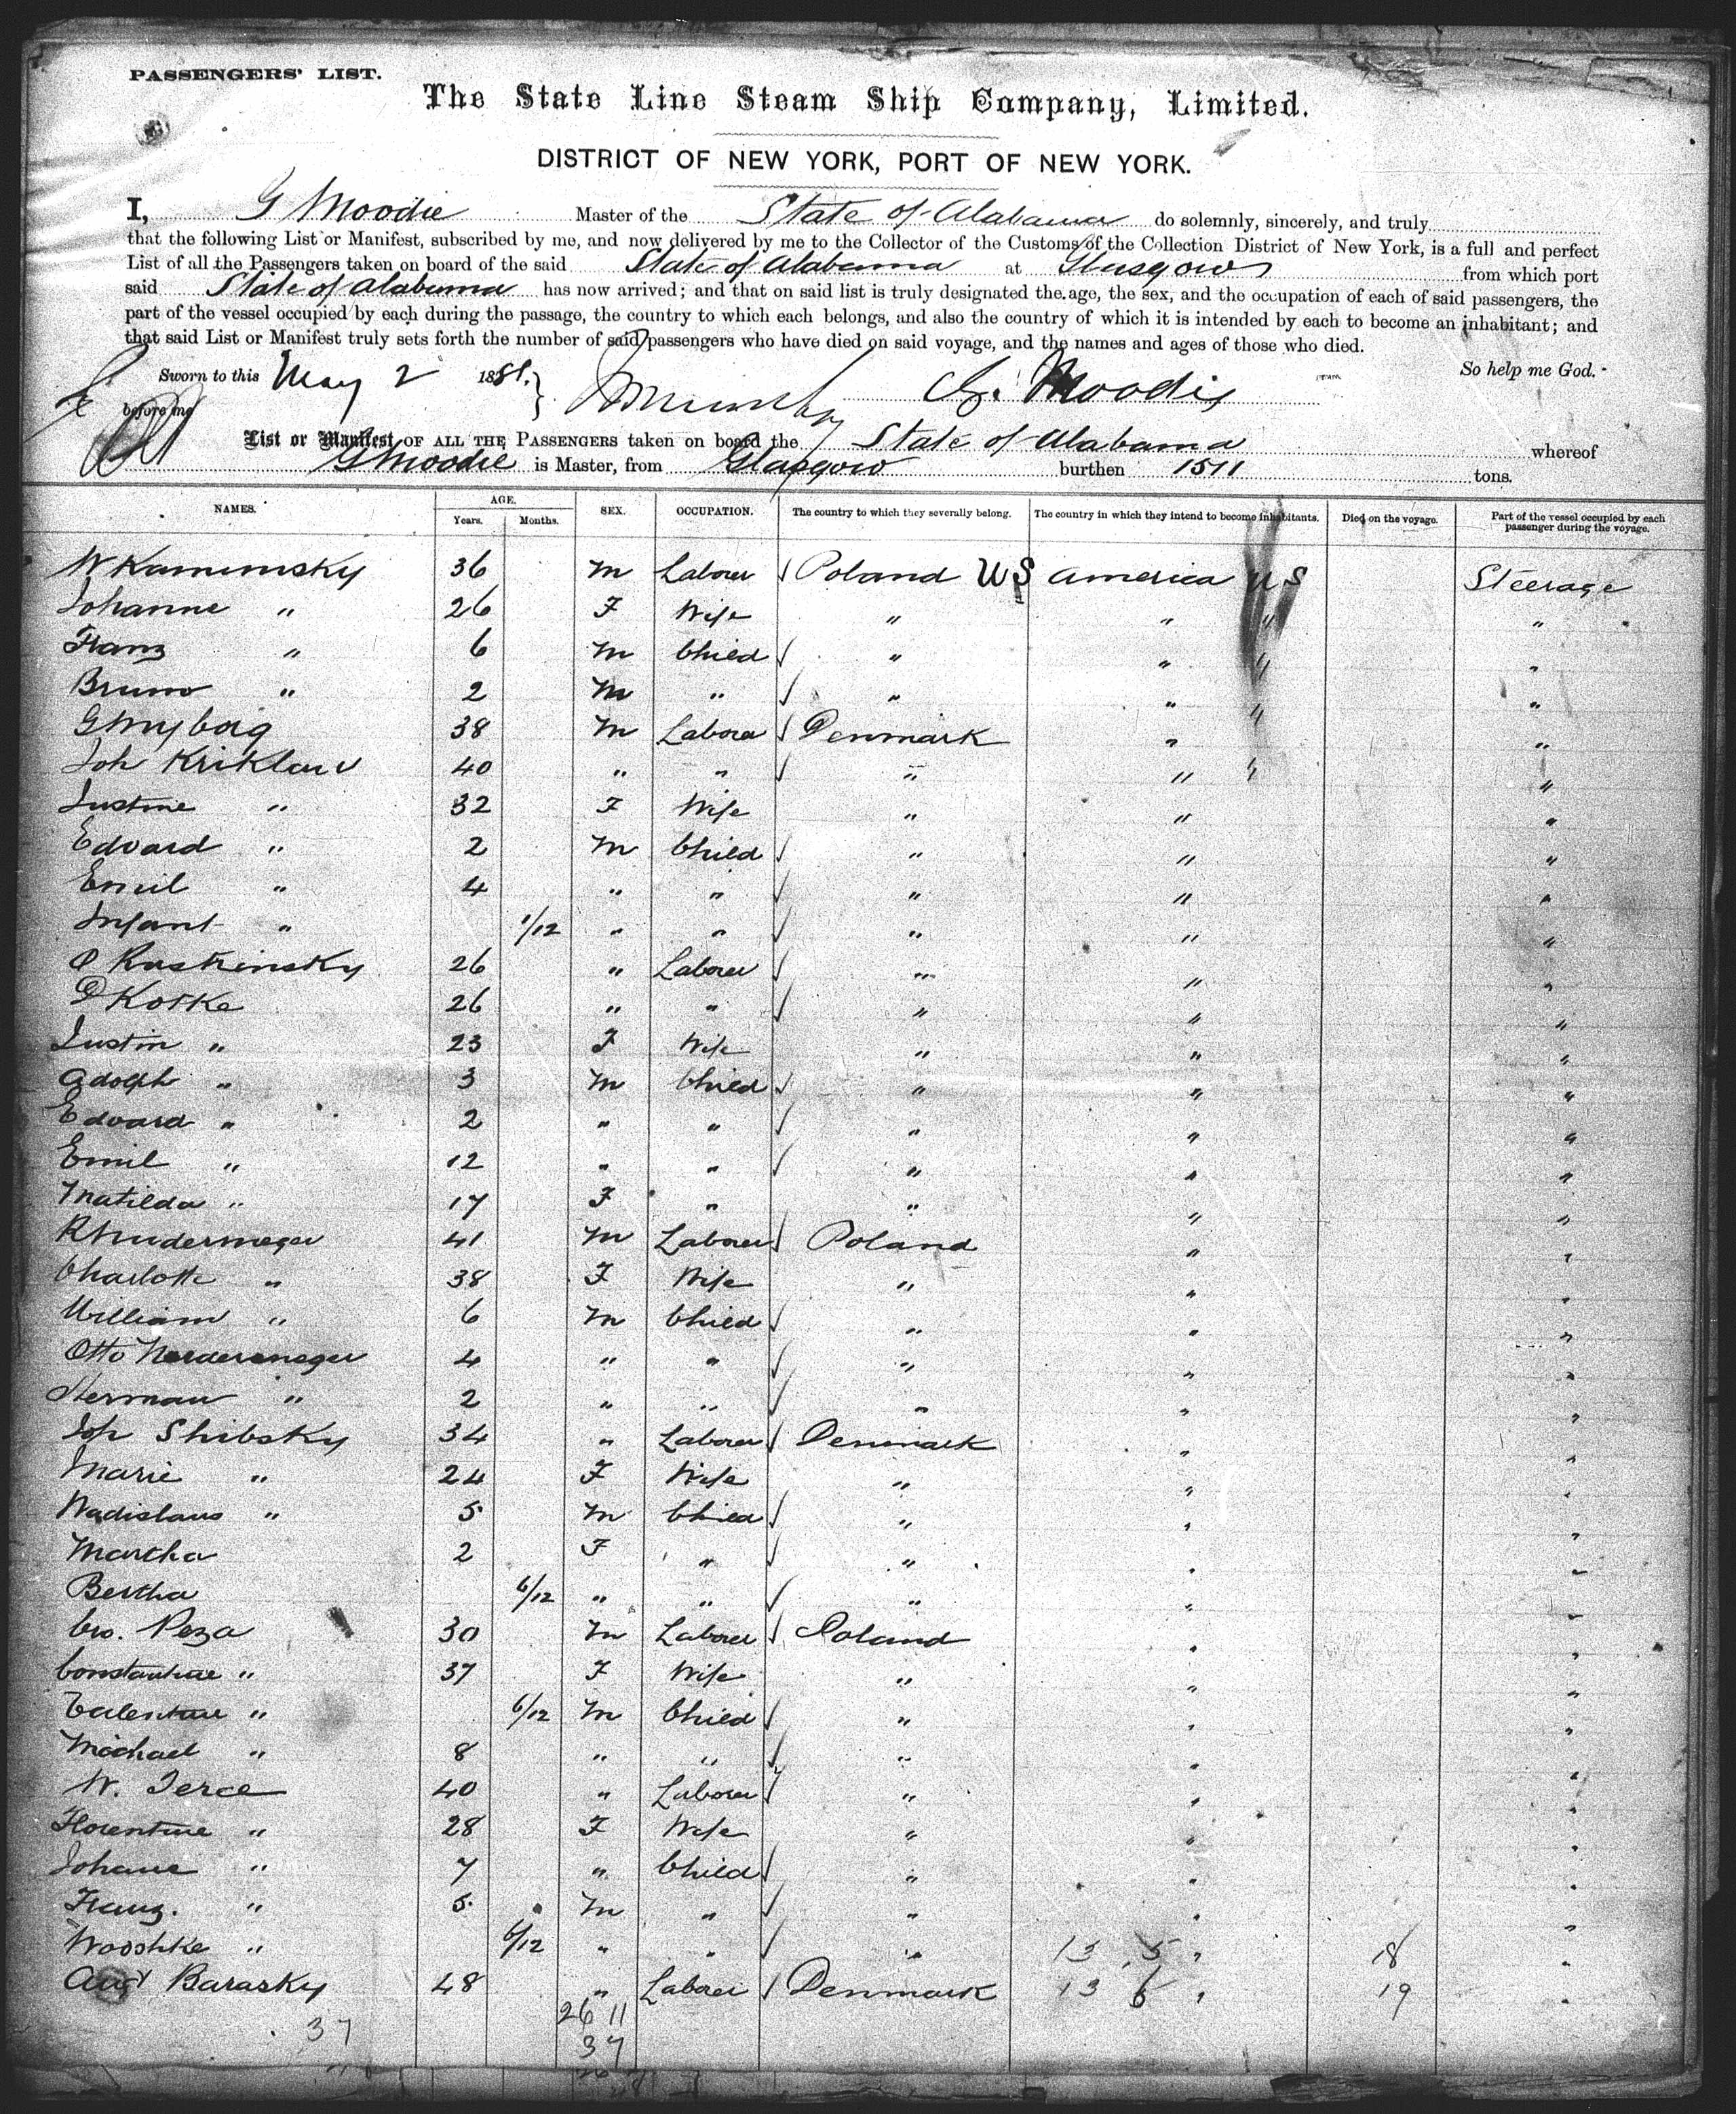 PASSENGERS' LIST.
The State Line Steam Ship Company, Limited.
DISTRICT OF NEW YORK, PORT OF NEW YORK.
I, G Moodie Master of the State of Alabama do solemnly, sincerely, and truly
that the following List or Manifest, subscribed by me, and now delivered by me to the Collector of the Customs of the Collection District of New York, is a full and perfect
List of all the Passengers taken on board of the said State of Alabama at Glasgow from which port
said State of Alabama has now arrived; and that on said list is truly designated the age, the sex, and the occupation of each of said passengers, the
part of the vessel occupied by each during the passage, the country to which each belongs, and also the country of which it is intended by each to become an inhabitant; and
that said List or Manifest truly sets forth the number of said passengers who have died on said voyage, and the names and ages of those who died.
Sworn to this May 2 1881. G. Moodie So help me God.
before me
List or Manifest OF ALL THE PASSENGERS taken on board the State of Alabama whereof
G Moodie is Master, from Glasgow burthen 1511 tons.
NAMES. AGE. Years. Months. SEX. OCCUPATION. The country to which they severally belong. The country in which they intend to become inhabitants. Died on the voyage. Part of the vessel occupied by each passenger during the voyage.
W Kaminsky 36 M Laborer Poland US America US Steerage
Johanne " 26 F Wife " " " "
Franz " 6 M Child " " " "
Bruno " 2 M " " " " "
38 M Laborer Denmark " "
Joh 40 " " " " " "
Justine " 32 F Wife " " "
Edvard " 2 M Child " " "
Emil " 4 " " " " "
Infant " 1/12 " " " " "
26 " Laborer " " "
Kotke 26 " " " " "
Justin " 23 F Wife " " "
Adolph " 3 M Child " " "
Edvard " 2 " " " " "
Emil " 12 " " " " "
Matilda " 17 F " " " "
41 M Laborer Poland " "
Charlotte " 38 F Wife " " "
William " 6 M Child " " "
Otto 4 " " " " "
Herman " 2 " " " " "
Joh Shibsky 34 " Laborer Denmark " "
Marie " 24 F Wife " " "
Wadislaus " 5 M Child " " "
Martha 2 F " " " "
Bertha 6/12 " " " " "
Peza 30 M Laborer Poland " "
Constantine " 37 F Wife " " "
Valentine " 6/12 M Child " " "
Michael " 8 " " " " "
W. Terce 40 " Laborer " " "
Florentine " 28 F Wife " " "
Johane " 7 " Child " " "
Franz. " 5 M " " " "
Wooshke " 6/12 " " " 13 5 " 18 "
Aug Barasky 48 " Laborer Denmark 13 6 " 19 "
37 26 11
37